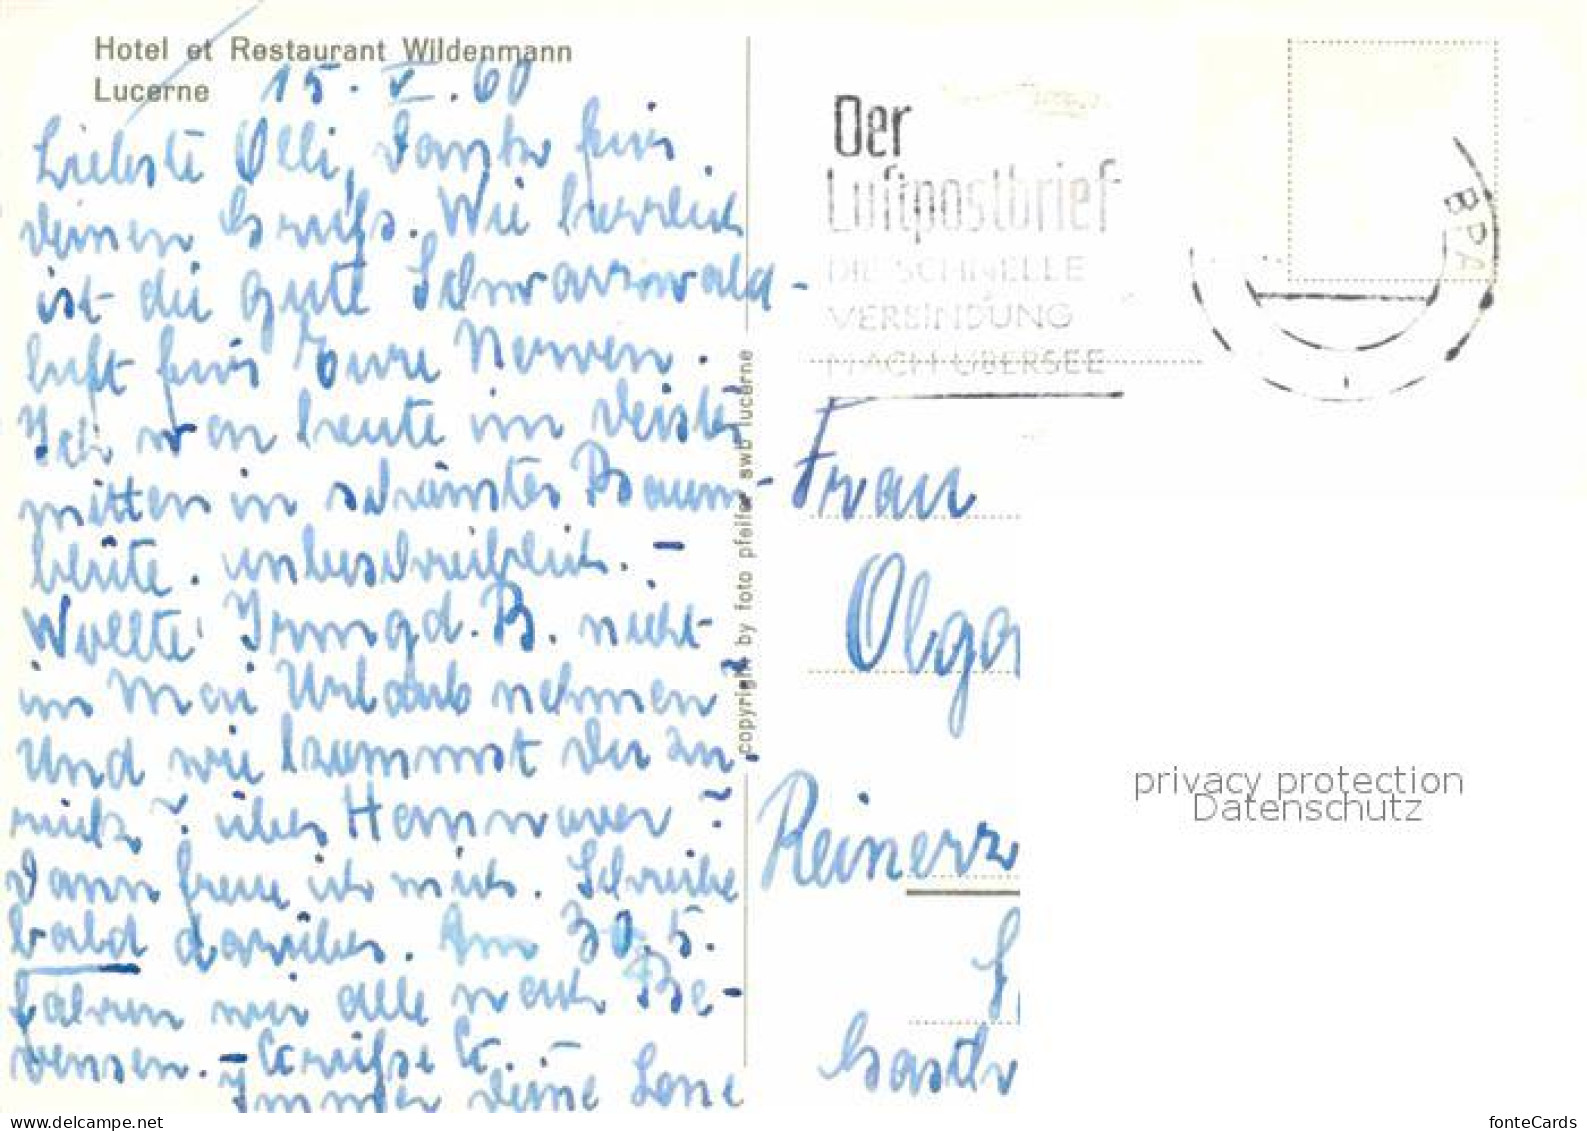 Hotel et Restaurant Wildenmann
Lucerne
15. V. 60
Liebste Olli, Dank für
deinen Gruß. Wie herrlich
ist die gute Schwarzwald-
luft für Eure Nerven.
Ich war heute im Deister
mitten in schönster Baum-
blüte. unbeschreiblich. -
Wollte Irmgd. B. nicht
im Mai Urlaub nehmen?
Und wie kommst du zu-
rück? über Hannover?
Dann freue ich mich. Schreibe
bald darüber. Am 30. 5.
fahren wir alle nach Be-
vensen. - Grüße G. -
Immer deine Lone
copyright by foto pfeifer swb lucerne
Der
Luftpostbrief
DIE SCHNELLE
VERBINDUNG
NACH ÜBERSEE
BPA
Frau
Olga
Reinerz
Gasth
privacy protection
Datenschutz
www.delcampe.net
fonteCards